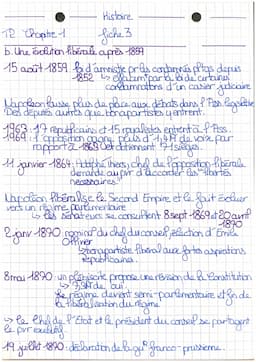 Histoire
T2 Chapitre 1 fiche 3
b. Une évolution libérale après 1859
15 août 1859 : loi d'amnistie pr les condamnés plus depuis
1852
condamnations d'un casier judiciaire
Napoléon laisse plus de place aux débats dans l'Ass. législative
Des députés autres que bonapartistes y entrent.
1963 : 17 républicains et 15 royalistes entrent à l'Ass.
1969 : l'opposition gagne plus d' de voix par
rapport à 1863 et détiennent 71 sièges.
11 janvier 1864 : Adolphe Thiers, chef de l'opposition libérale
demande au pvr d'accorder les "libertés
nécessaires"
Napoléon libéralise le Second Empire et le fait évoluer
vers un régime parlementaire
↳ les sénateurs se consultent 8 sept 1869 et 20 avril
1870
2 janv 1870 : nominat° du chef du conseil, élection d'Emile
Ollivier
↳ bonapartiste libéral aux fortes aspirations
républicaines.
8 mai 1870 : un plébiscite propose une révision de la Constitution
de oui.
Le régime devient semi-parlementaire et fin de
la libéralisation du régime
↳ Le chef de l'Etat et le président du conseil se partagent
le pvr exécutif
19 juillet 1870 : déclaration de la gu° franco-prussienne.